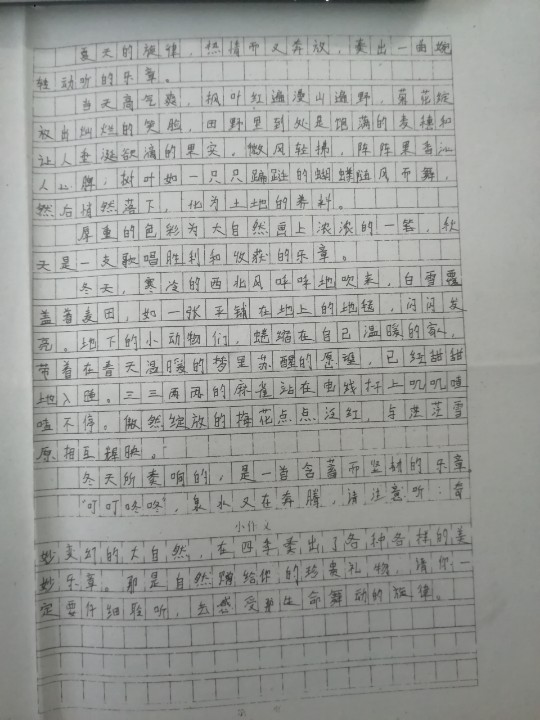 夏天的旋律，热情而又奔放，奏出一曲婉
转动听的乐章。
当天高气爽，枫叶红遍漫山遍野，菊花绽
放出灿烂的笑脸，田野里到处是饱满的麦穗和
让人垂涎欲滴的果实。微风轻拂，阵阵果香沁
人心脾；树叶如一只只蹁跹的蝴蝶随风而舞，
然后悄然落下，化为土地的养料。
厚重的色彩为大自然画上浓浓的一笔，秋
天是一支歌唱胜利和收获的乐章。
冬天，寒冷的西北风呼呼地吹来，白雪覆
盖着麦田，如一张平铺在地上的地毯，闪闪发
亮。地下的小动物们，蜷缩在自己温暖的家，
带着在春天温暖的梦里苏醒的愿望，已经甜甜
地入睡。三三两两的麻雀站在电线杆上叽叽喳
喳不停。傲然绽放的梅花点点泛红，与茫茫雪
原相互辉映。
冬天所奏响的，是一首含蓄而坚韧的乐章。
“叮叮咚咚”，泉水又在奔腾，请注意听：奇
小作文
妙变幻的大自然，在四季奏出了各种各样的美
妙乐章。那是自然赠给你的珍贵礼物，请你一
定要仔细聆听，去感受那生命舞动的旋律。